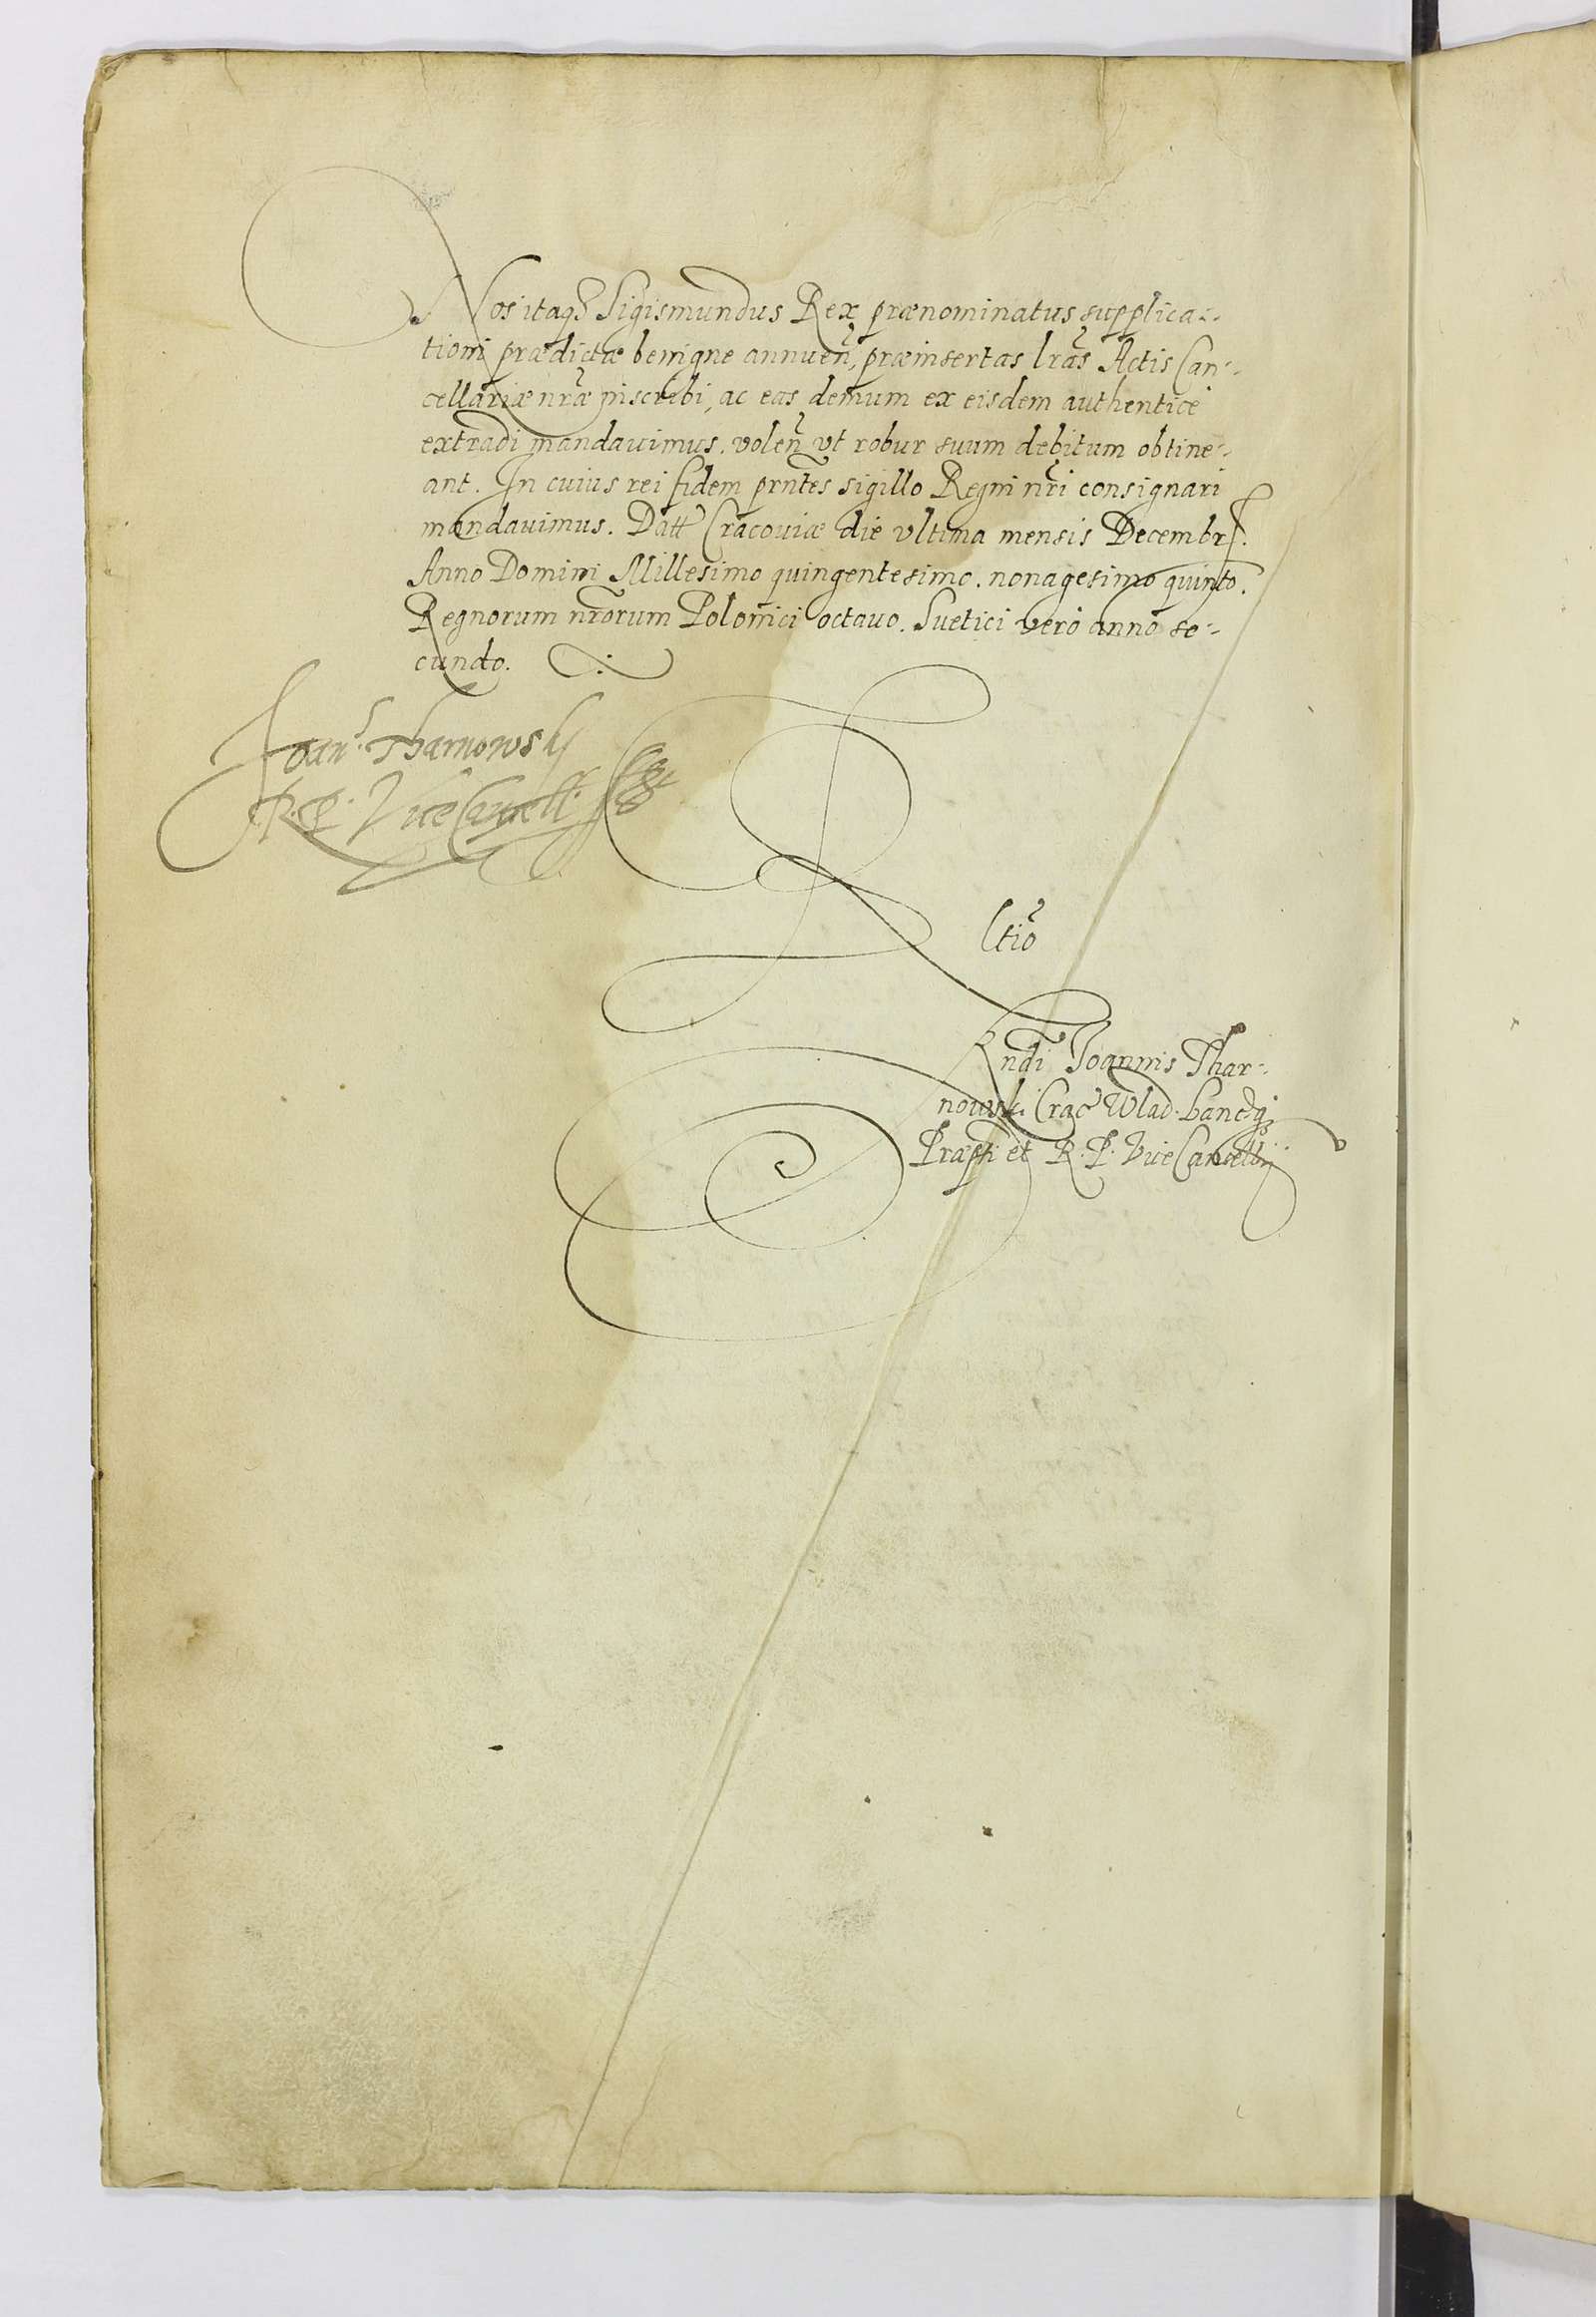 Nos itaq Sigismundus Rex prænominatus supplica-
tioni prædictæ benigne annuen, præinsertas lras Actis Can-
cellariæ nræ inscribi, ac eas demum ex eisdem authentice
extradi mandauimus. volen vt robur suum debitum obtine-
ant. In cuius rei fidem pntes sigillo Regni nri consignari
mandauimus. Datt Cracouiæ die vltima mensis Decembr.
Anno Domini Millesimo quingentesimo. nonagesimo quinto.
Regnorum nrorum Polonici octauo. Suetici vero anno se-
cundo.
Joan. Tharnowsky
R. P. Vice Cancell.
Rltio
Rndi Joannis Thar-
nowski Crac Wlad. Lancq
Præpti et R. P. Vice Cancellrij